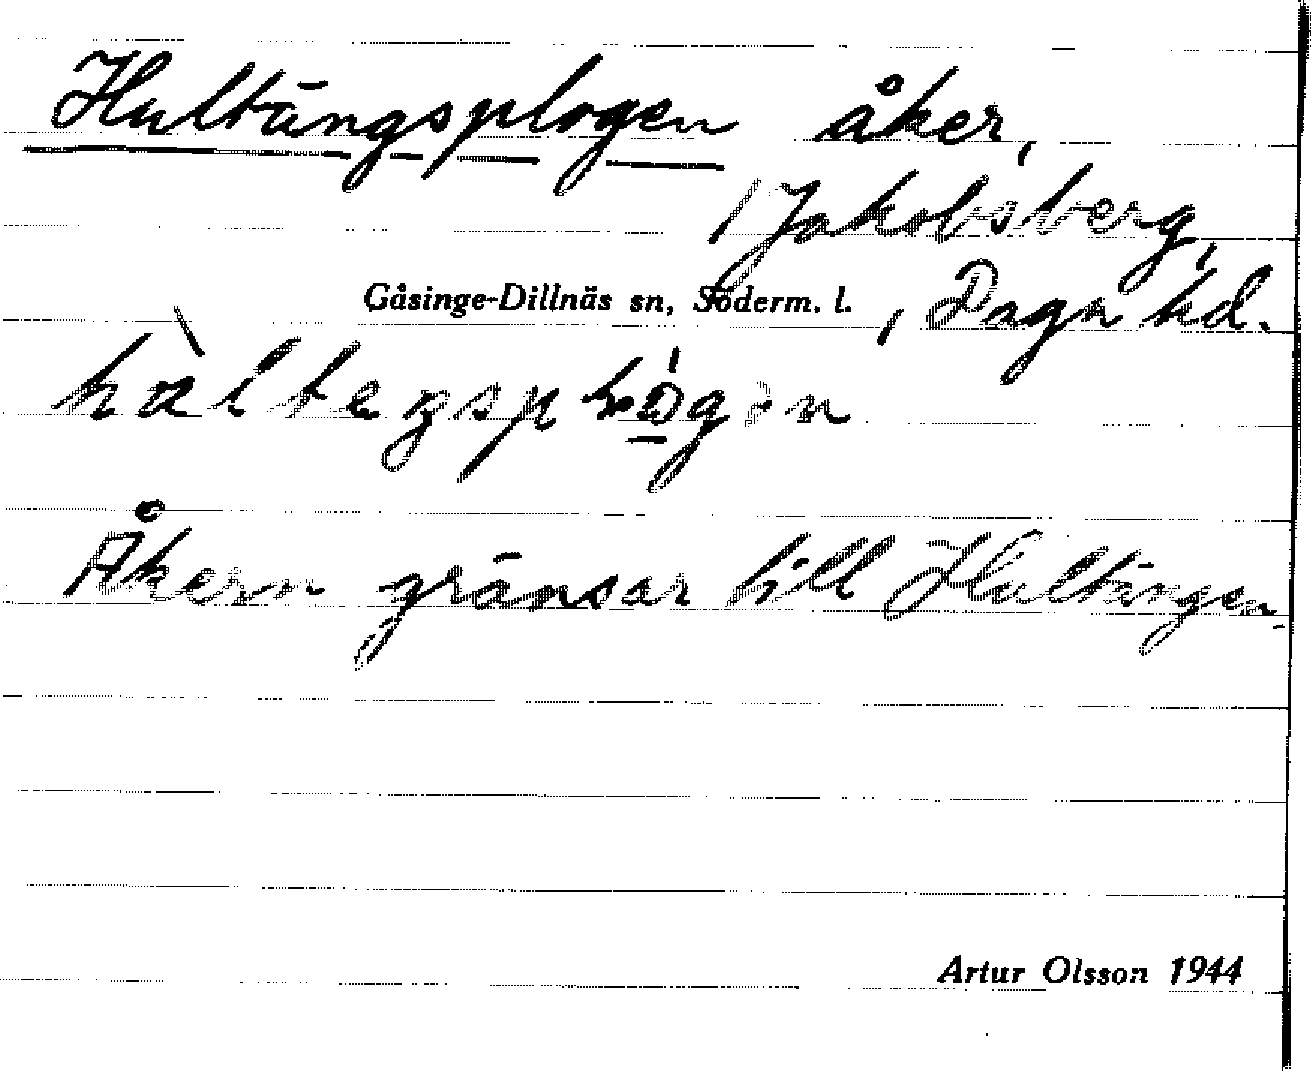 Hultängsplogen åker,
/ Jakobsberg,
Gåsinge-Dillnäs sn, Söderm. l., Daga hd.
Åkern gränsar till Hultängen.
Artur Olsson 1944